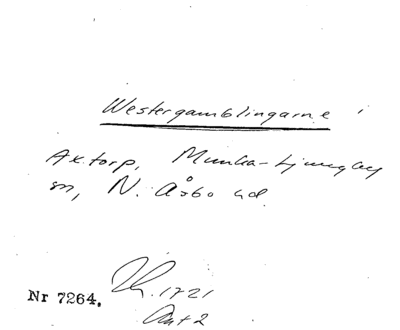 Westergamblingarne i
Axtorp, Munka-Ljungby
sn, N. Åsbo hd.
Nr 7264. 1721
Ant 2